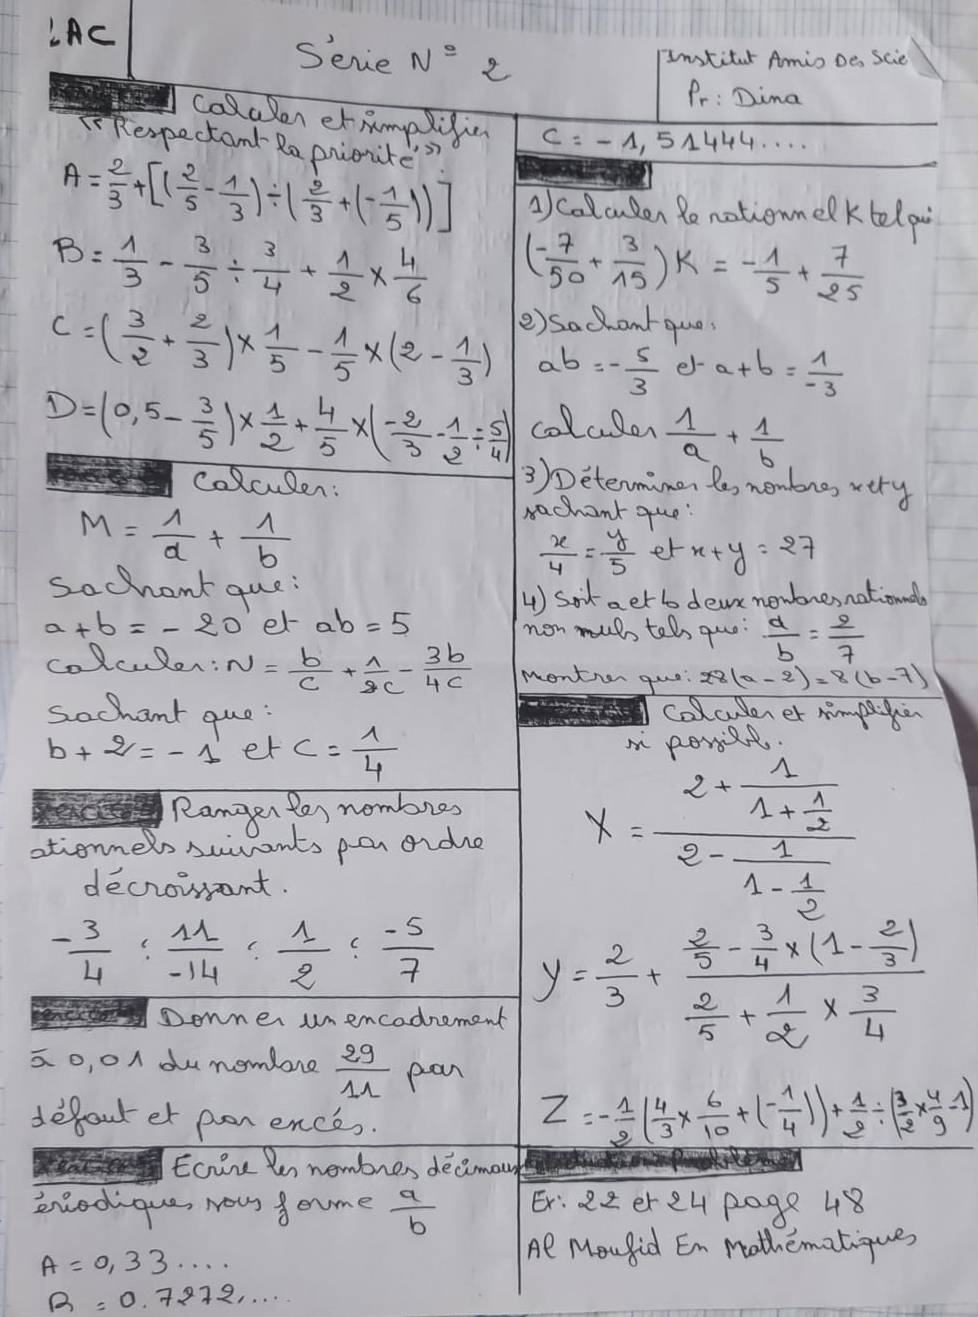 1AC
Série N° 2
Institut Amis Des Scie
Pr: Dina
Calculer et simplifier
"Respectant la priorité"
A = 2/3 + [(2/5 - 1/3) ÷ (2/3 + (-1/5))]
B = 1/3 - 3/5 ÷ 3/4 + 1/2 × 4/6
C = (3/2 + 2/3) × 1/5 - 1/5 × (2 - 1/3)
D = (0,5 - 3/5) × 1/2 + 4/5 × (-2/3 - 1/2 ÷ 5/4)
Calculer:
M = 1/a + 1/b
Sachant que:
a + b = - 20 et ab = 5
calculer: N = b/c + 1/2c - 3b/4c
Sachant que:
b + 2 = - 1 et c = 1/4
Ranger les nombres
ationnels suivants par ordre
décroissant.
-3/4 ; 11/-14 ; 1/2 ; -5/7
Donner un encadrement
à 0,01 du nombre 29/11 par
défaut et par excés.
Ecrire les nombres décimaux
ériodiques sous forme a/b
A = 0,33....
B = 0.7272,....
C = - 1,51444....
1) Calculer le rationnel K tel qu
(-7/50 + 3/15) K = -1/5 + 7/25
2) Sachant que:
ab = -5/3 et a + b = 1/-3
calculer 1/a + 1/b
3) Déterminer les nombres x et y
sachant que:
x/4 = y/5 et x + y = 27
4) Soit a et b deux nombres rationnels
non nuls tels que: a/b = 2/7
Montrer que: 28(a - 2) = 8(b - 7)
Calculer et simplifier
si possible.
X = (2 + 1/(1 + 1/2)) / (2 - 1/(1 - 1/2))
Y = 2/3 + (2/5 - 3/4 × (1 - 2/3)) / (2/5 + 1/2 × 3/4)
Z = -1/2 (4/3 × 6/10 + (-1/4)) + 1/2 ÷ (3/2 × 4/9 - 1)
Ex: 22 et 24 page 48
Al Moufid En Mathématiques